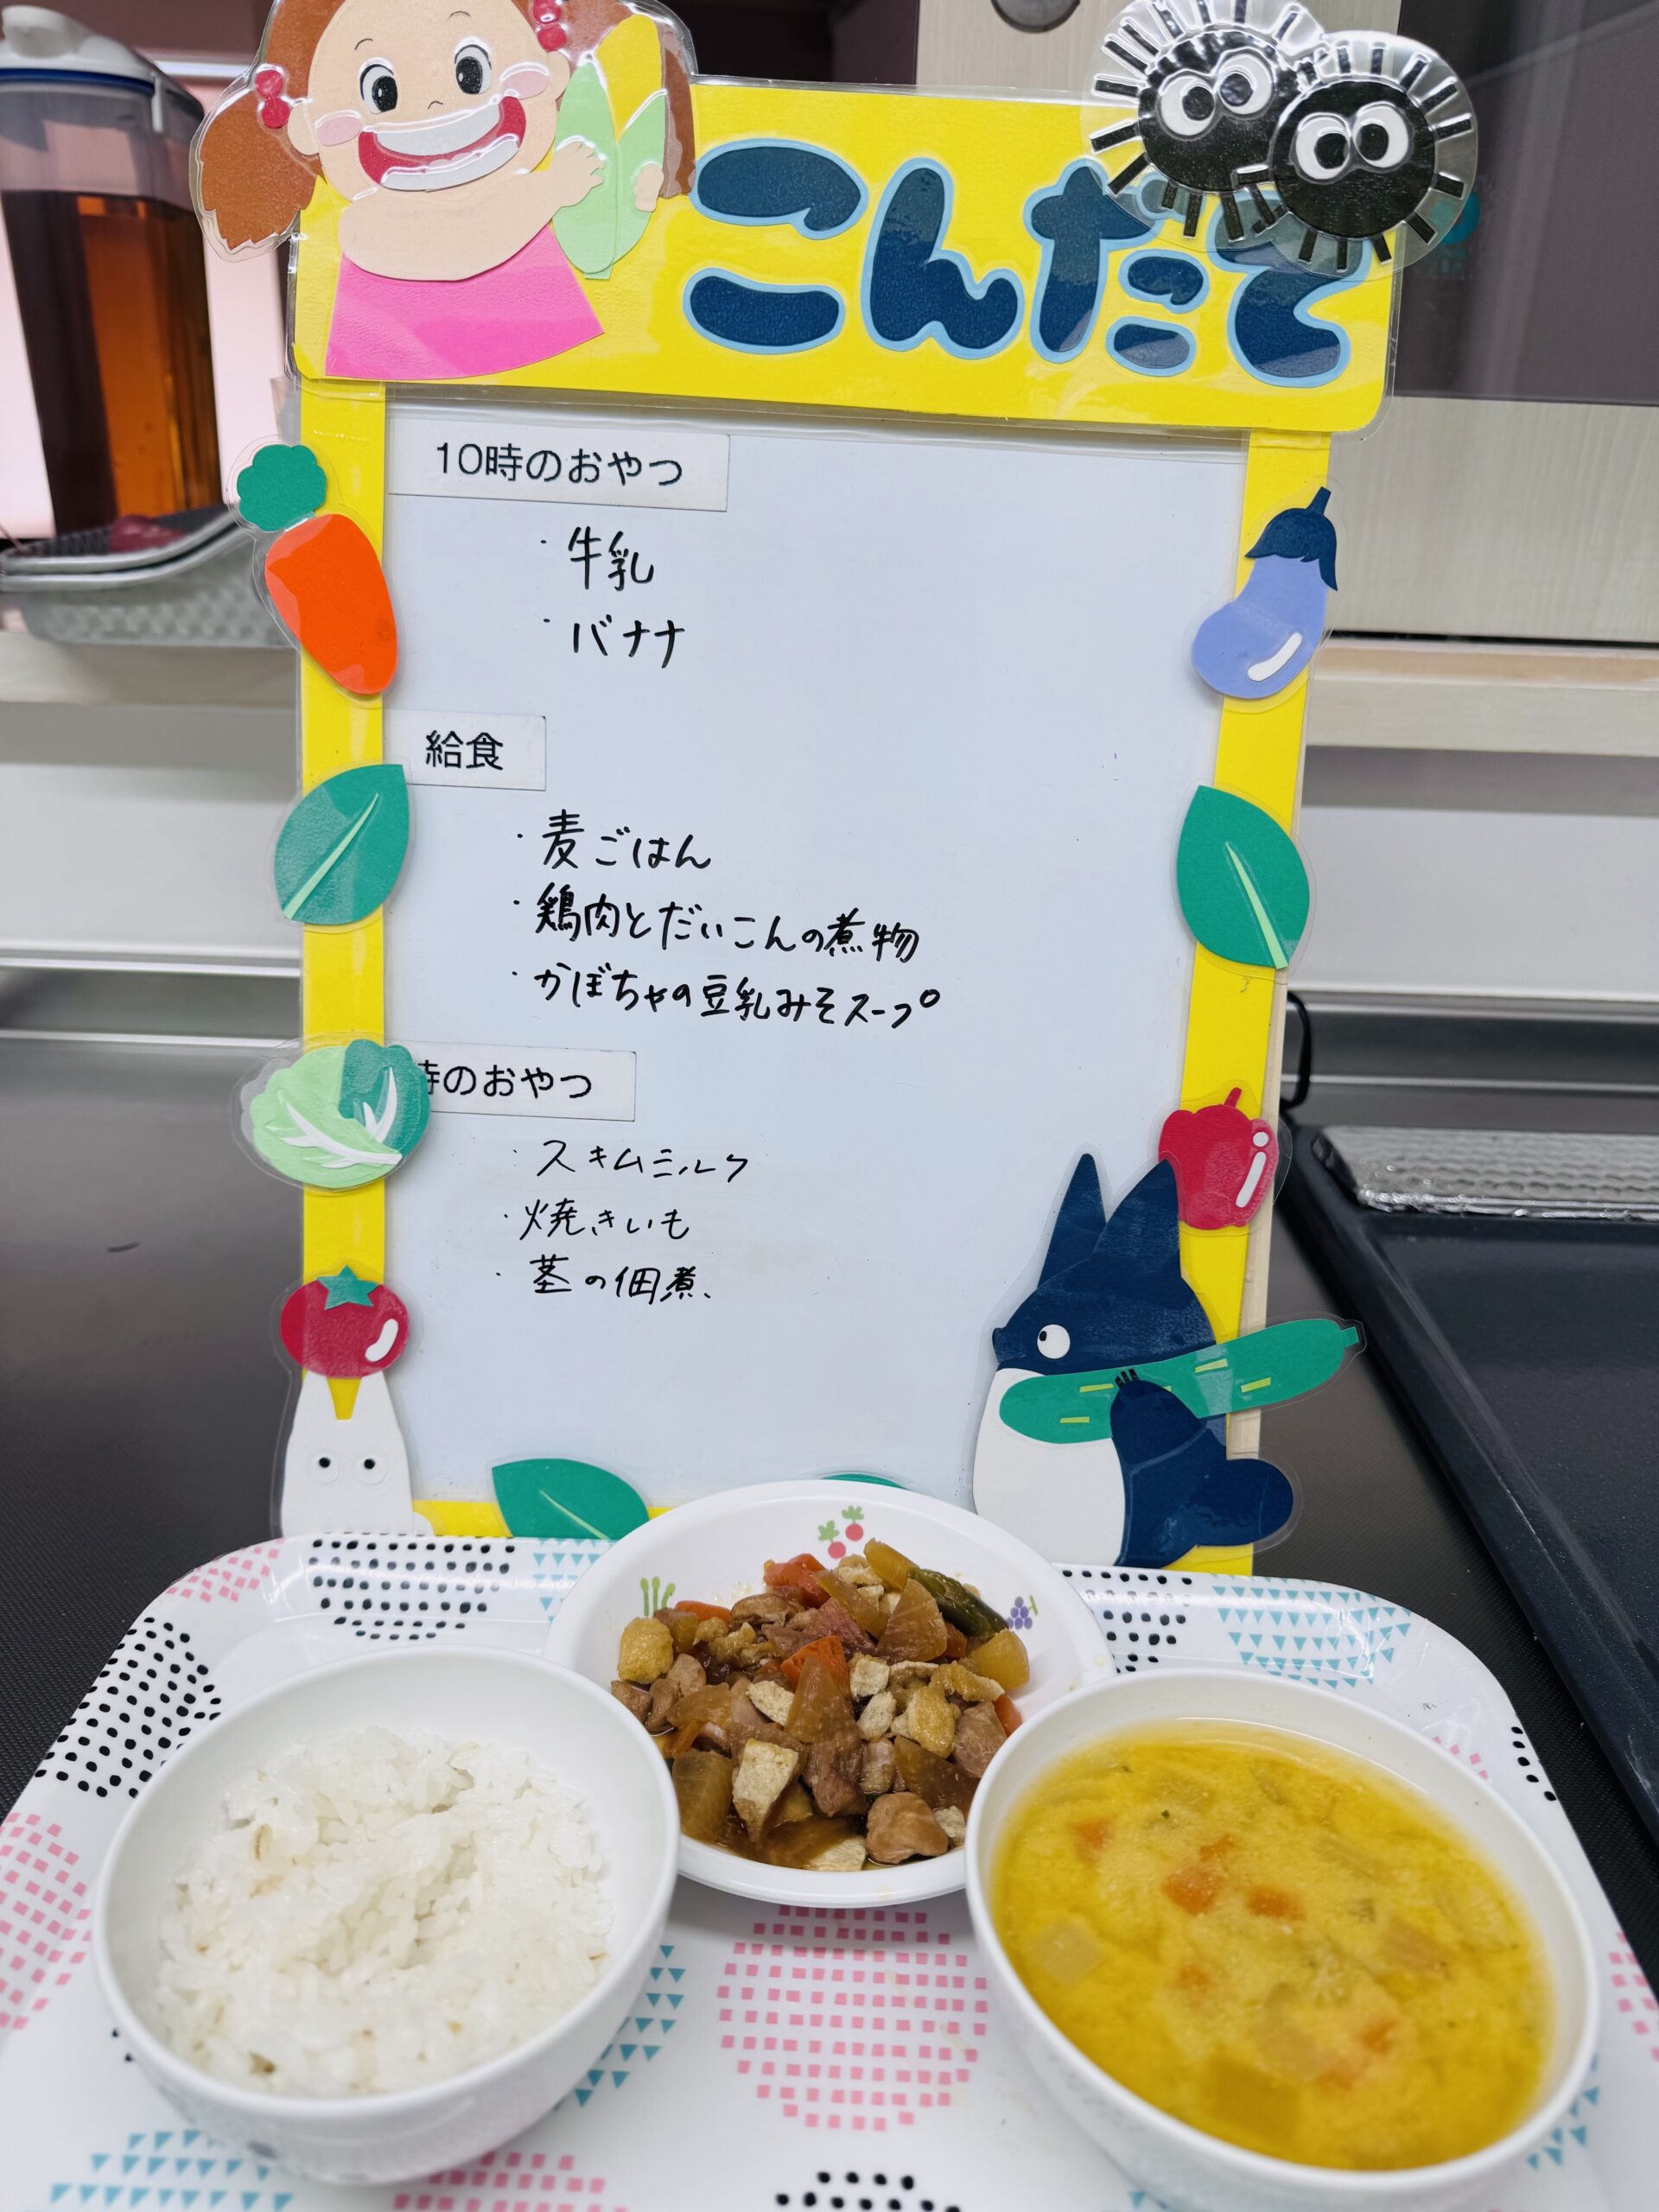 こんだて
10時のおやつ
・牛乳
・バナナ
給食
・麦ごはん
・鶏肉とだいこんの煮物
・かぼちゃの豆乳みそスープ
時のおやつ
・スキムミルク
・焼きいも
・茎の佃煮